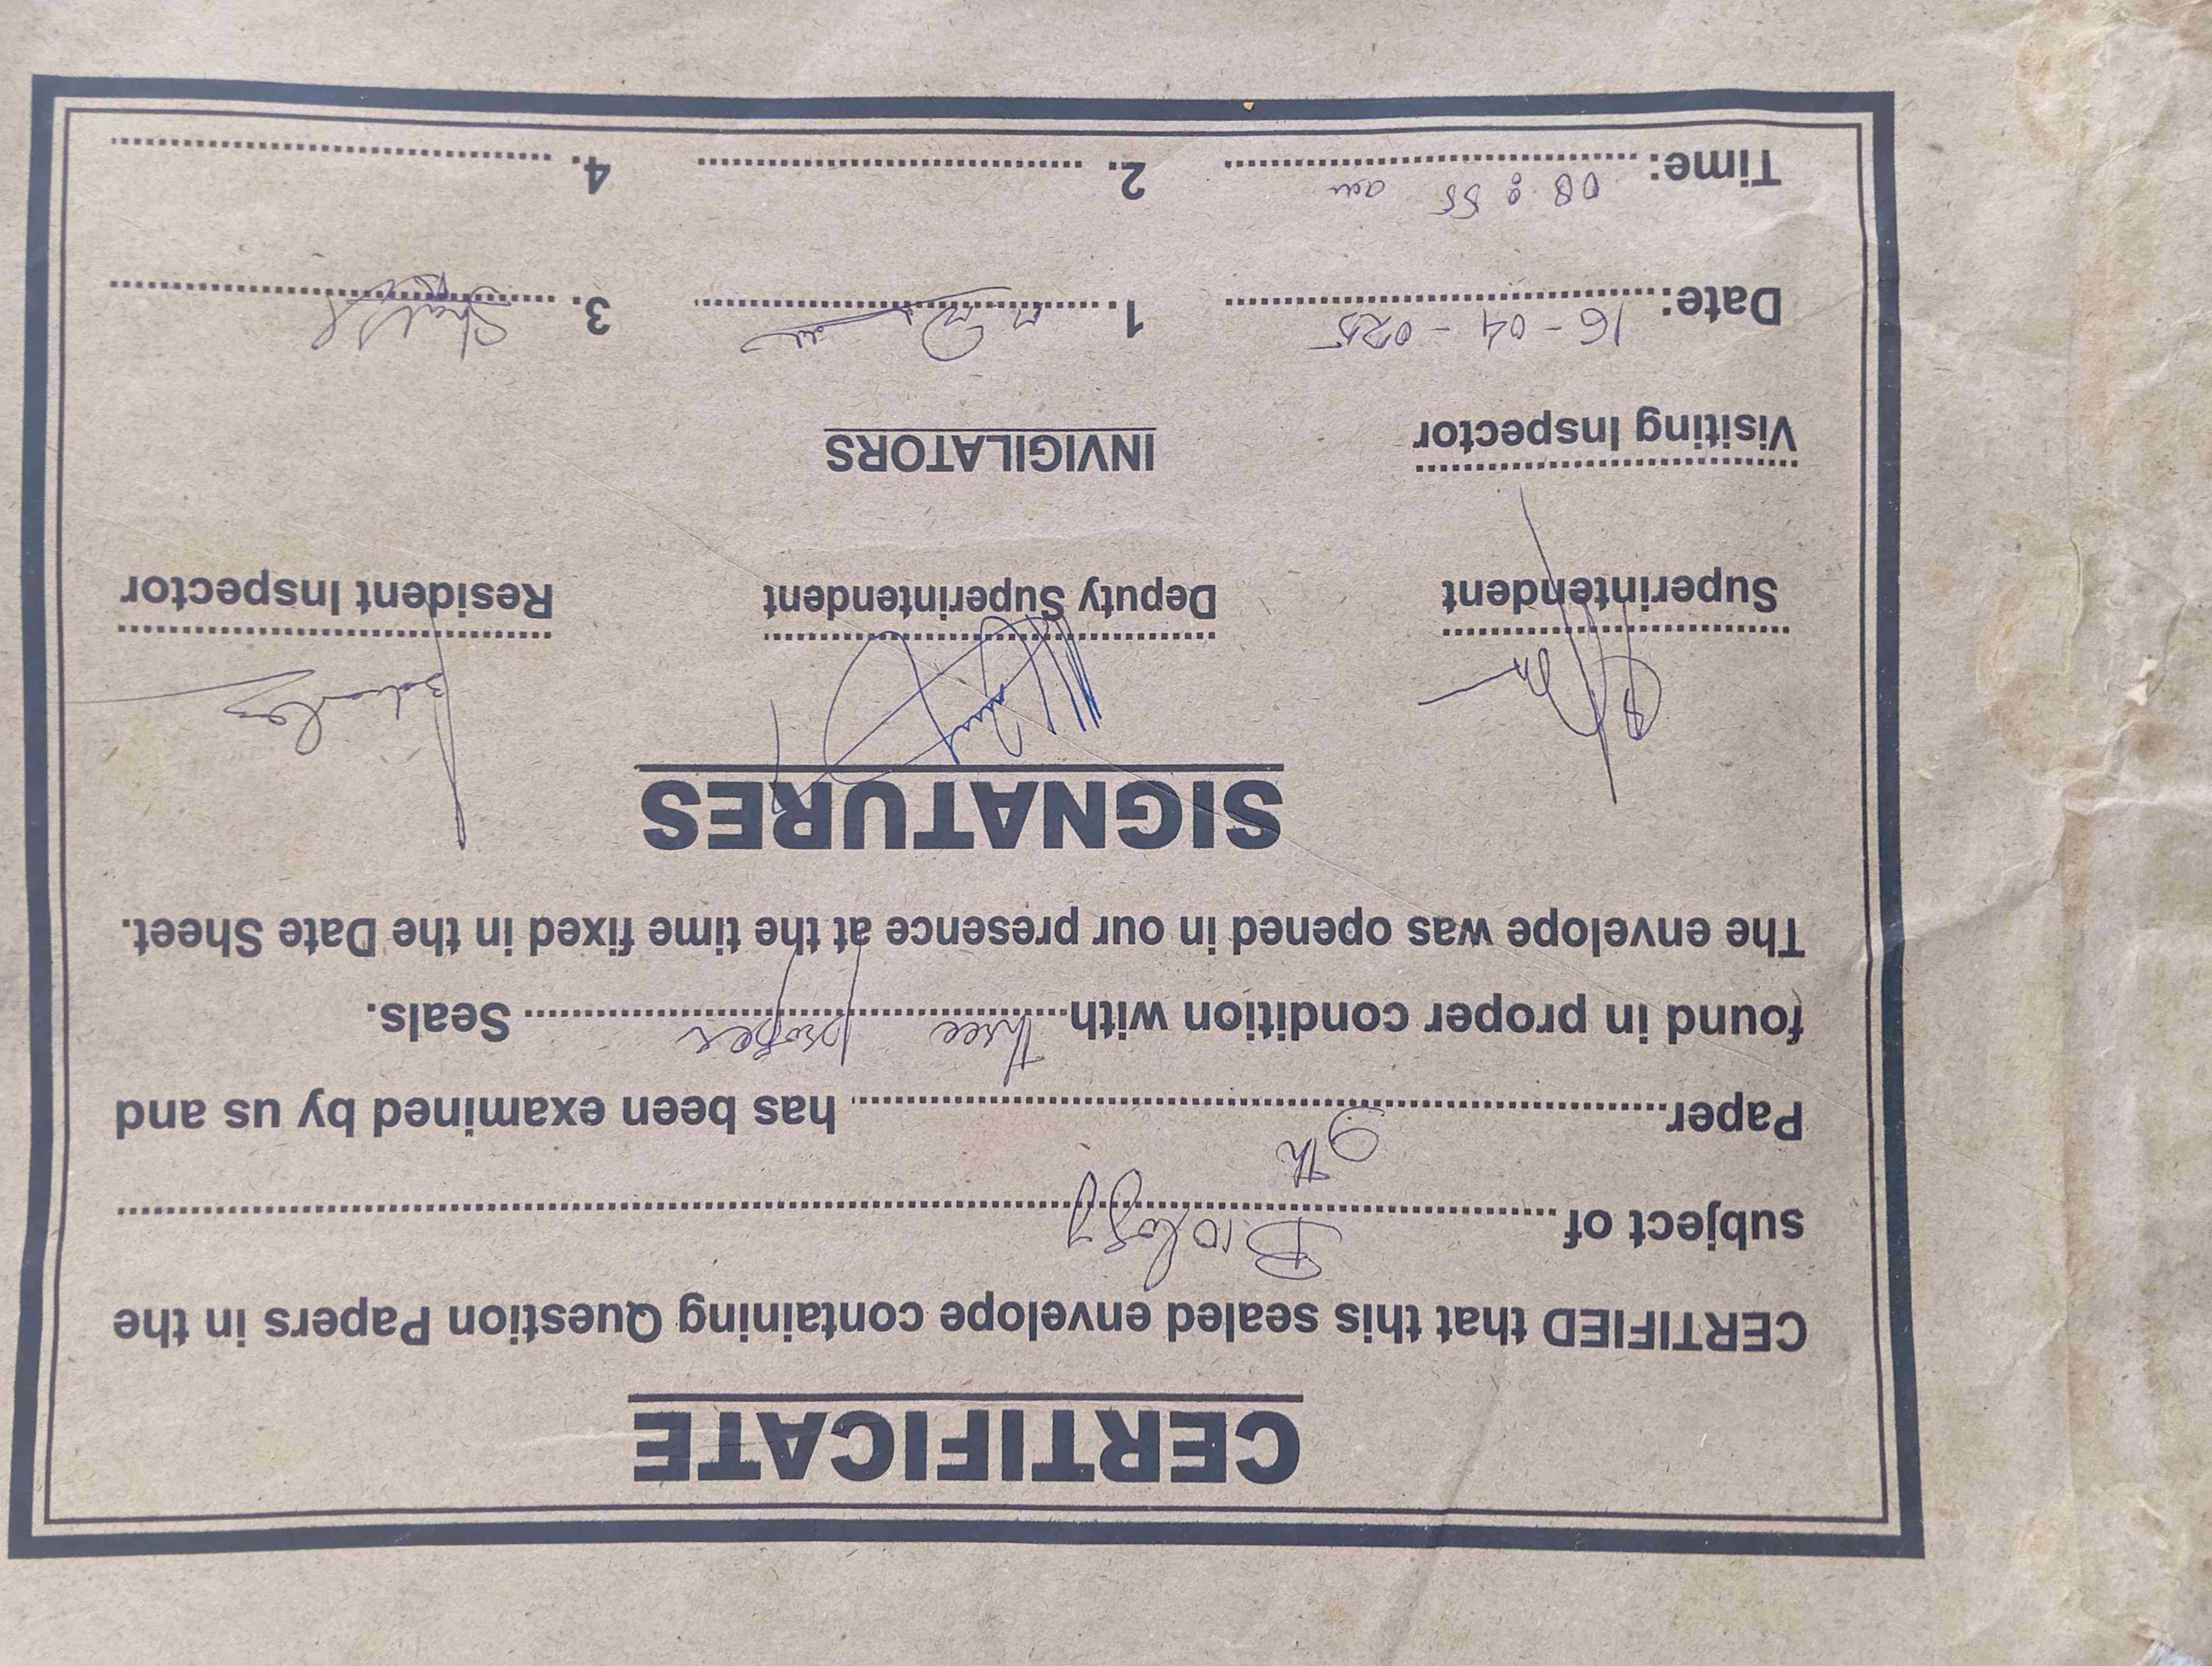 CERTIFICATE
CERTIFIED that this sealed envelope containing Question Papers in the
subject of Biology
Paper 9th has been examined by us and
found in proper condition with three proper Seals.
The envelope was opened in our presence at the time fixed in the Date Sheet.
SIGNATURES
Superintendent Deputy Superintendent Resident Inspector
Visiting Inspector INVIGILATORS
Date: 16-04-025 1. 3.
Time: 08:55 am 2. 4.